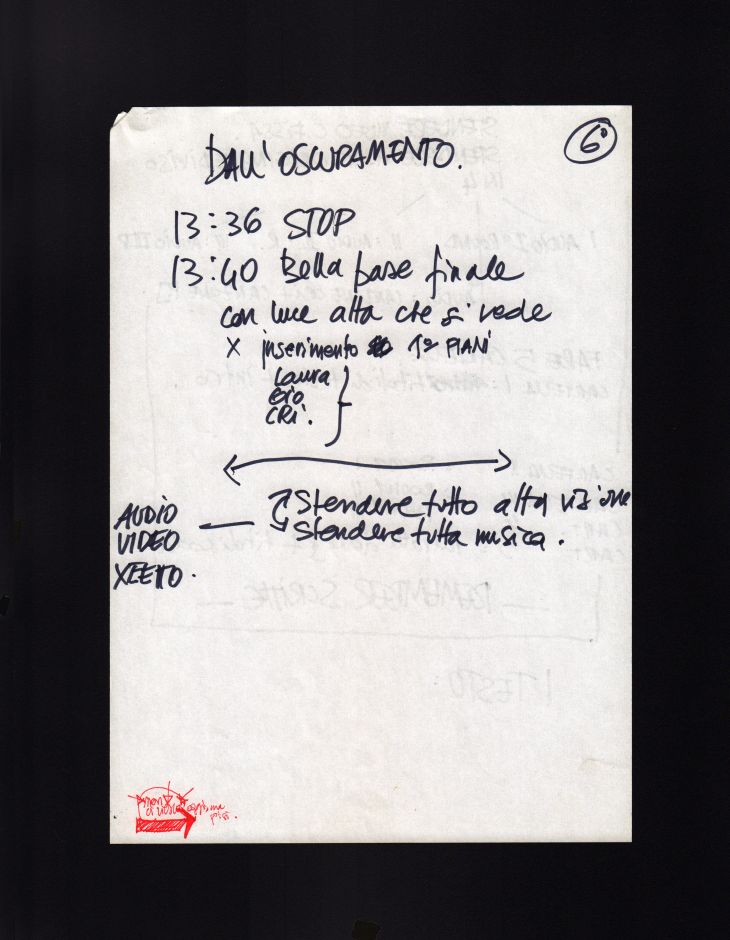 6°
DALL' OSCURAMENTO.
13:36 STOP
13:40 Bella base finale
con luce alta che si vede
X inserimento 1° PIANI
Laura
Gio
CRI.
AUDIO
VIDEO
Stendere tutto alta visione
Stendere tutta musica.